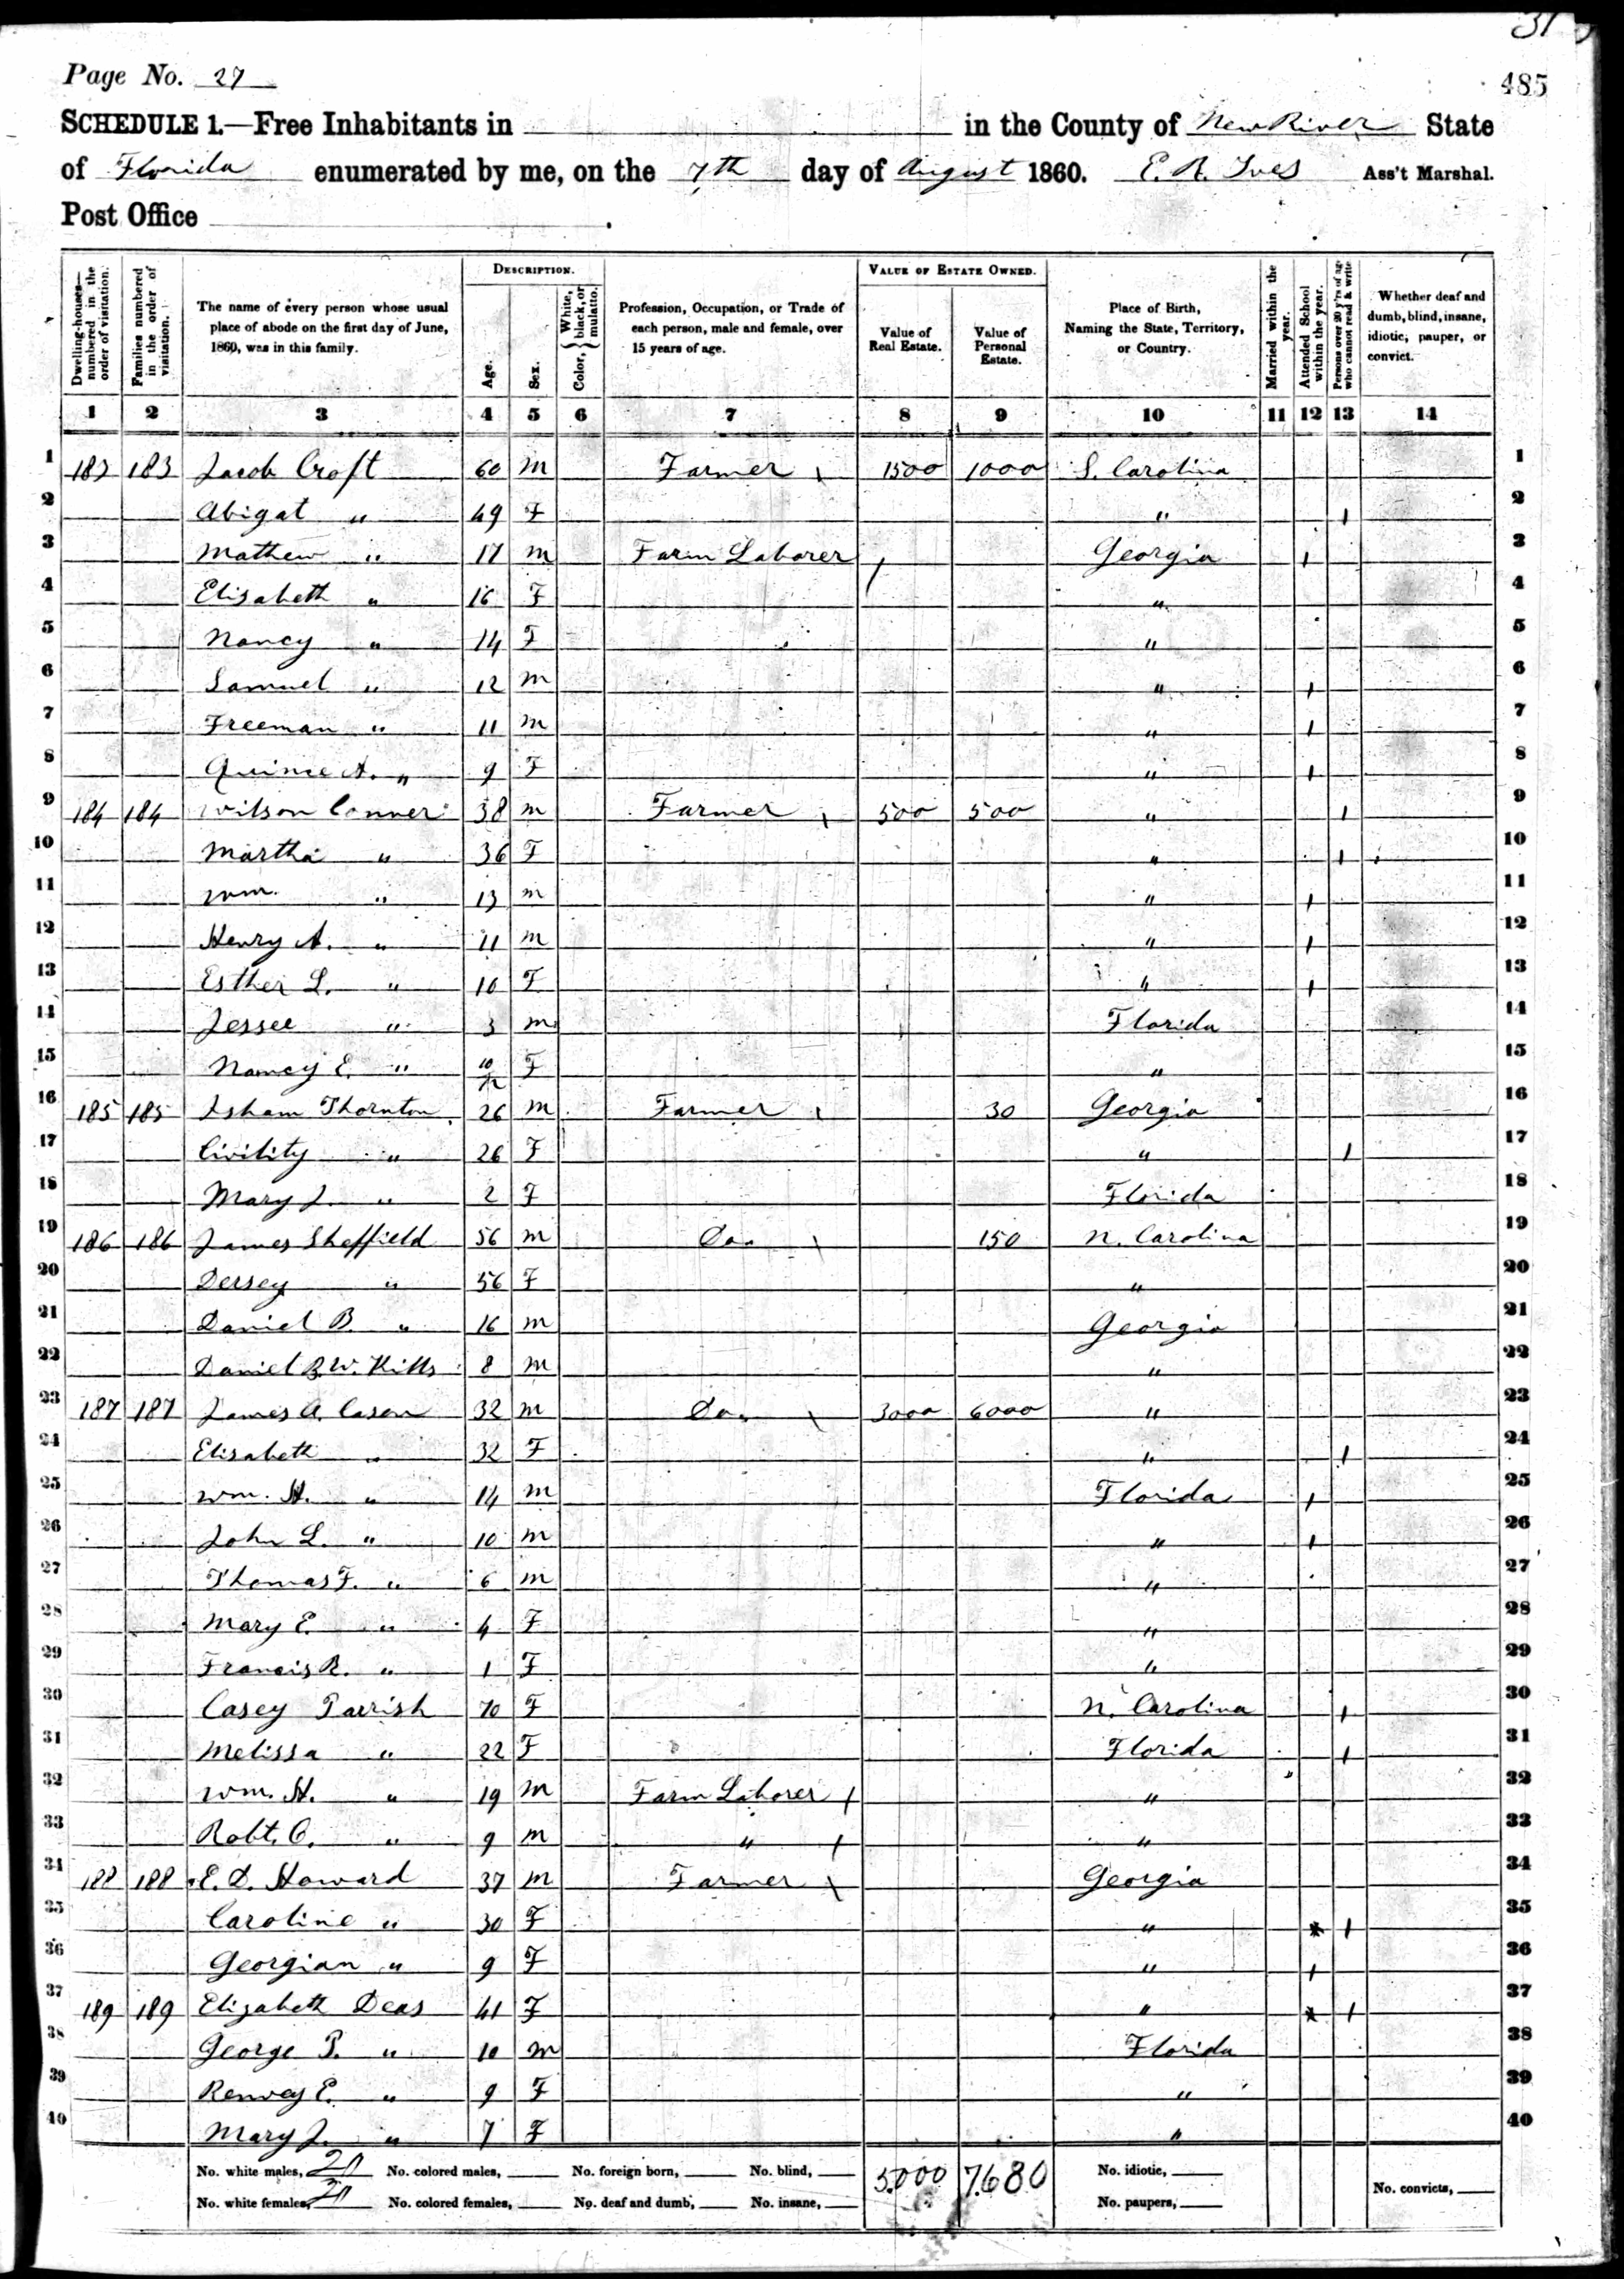 31
Page No. 27
485
SCHEDULE 1.—Free Inhabitants in in the County of New River State
of Florida enumerated by me, on the 7th day of August 1860. E. R. Ives Ass't Marshal.
Post Office
Dwelling-houses—numbered in the order of visitation.
Families numbered in the order of visitation.
The name of every person whose usual place of abode on the first day of June, 1860, was in this family.
DESCRIPTION.
Age.
Sex.
Color, White, black, or mulatto.
Profession, Occupation, or Trade of each person, male and female, over 15 years of age.
VALUE OF ESTATE OWNED.
Value of Real Estate.
Value of Personal Estate.
Place of Birth, Naming the State, Territory, or Country.
Married within the year.
Attended School within the year.
Persons over 20 y'rs of age who cannot read & write
Whether deaf and dumb, blind, insane, idiotic, pauper, or convict.
1 2 3 4 5 6 7 8 9 10 11 12 13 14
1 183 183 Jacob Croft 60 m Farmer 1500 1000 S. Carolina 1
2 Abigat " 49 F " / 2
3 Mathew " 17 m Farm Laborer Georgia / 3
4 Elisabeth " 16 F " 4
5 Nancy " 14 F " 5
6 Samuel " 12 m " / 6
7 Freeman " 11 m " / 7
8 Quince A. " 9 F " / 8
9 184 184 Wilson Conner 38 m Farmer 500 500 " / 9
10 Martha " 36 F " / 10
11 Wm. " 13 m " / 11
12 Henry A. " 11 m " / 12
13 Esther L. " 10 F " / 13
14 Jessee " 3 m Florida 14
15 Nancy E. " 10/12 F " 15
16 185 185 Isham Thornton 26 m Farmer 30 Georgia 16
17 Civility " 26 F " / 17
18 Mary J. " 2 F Florida 18
19 186 186 James Sheffield 56 m Do. 150 N. Carolina 19
20 Dersey " 56 F " 20
21 Daniel B. " 16 m Georgia 21
22 Daniel B. W. Kitts 8 m " 22
23 187 187 James A. Cason 32 m Do. 3000 6000 " 23
24 Elisabeth " 32 F " / 24
25 Wm. H. " 14 m Florida / 25
26 John L. " 10 m " / 26
27 Thomas F. " 6 m " 27
28 Mary E. " 4 F " 28
29 Francis R. " 1 F " 29
30 Casey Parrish 70 F N. Carolina / 30
31 Melissa " 22 F Florida / 31
32 Wm. H. " 19 m Farm Laborer " 32
33 Robt. C. " 9 m " " 33
34 188 188 E. D. Howard 37 m Farmer Georgia 34
35 Caroline " 30 F " / 35
36 Georgian " 9 F " / 36
37 189 189 Elizabeth Deas 41 F " / 37
38 George P. " 10 m Florida 38
39 Renvey E. " 9 F " 39
40 Mary J. " 7 F " 40
No. white males, 20 No. colored males, No. foreign born, No. blind, 5000 7680 No. idiotic,
No. white females, 20 No. colored females, No. deaf and dumb, No. insane, No. paupers, No. convicts,